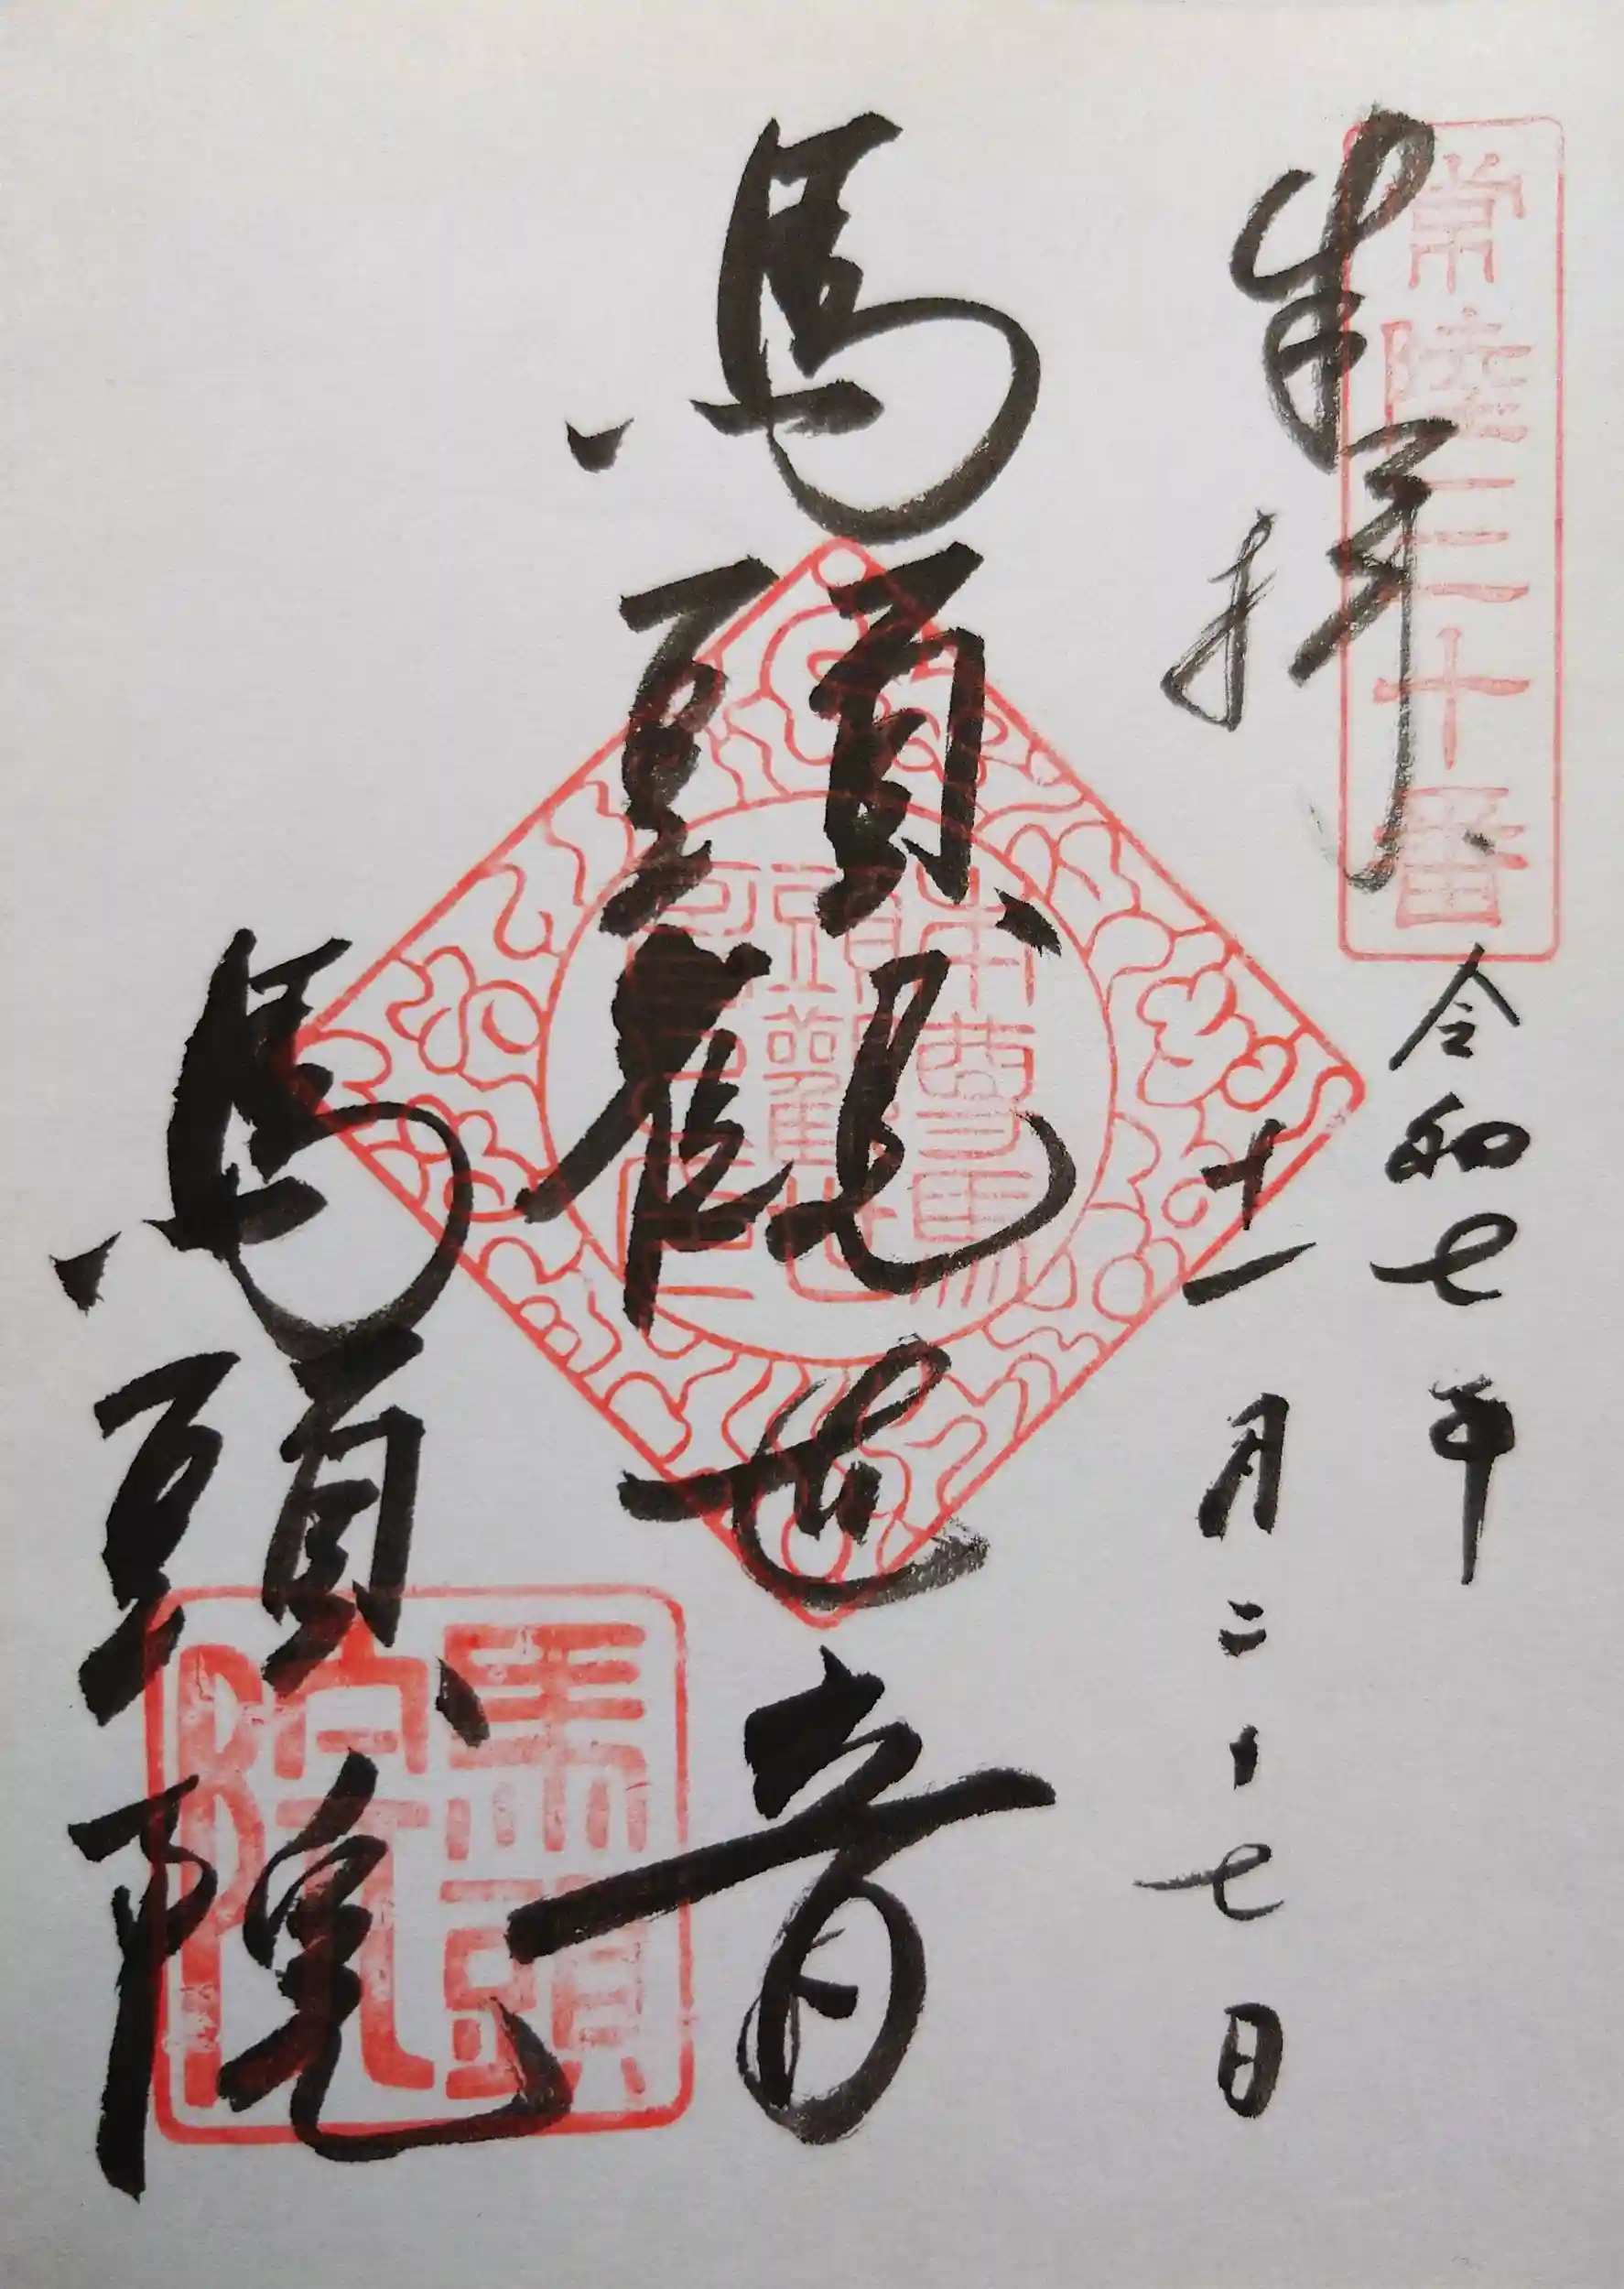 常陸三十番
奉拝
令和七年
十一月二十七日
馬頭観世音
本尊馬
頭觀世
馬頭院
馬頭
院